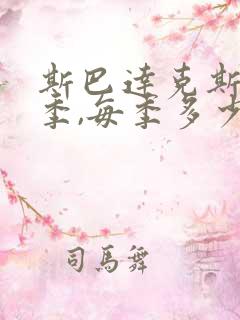 斯巴达克斯
季,每季多少
司馬舞